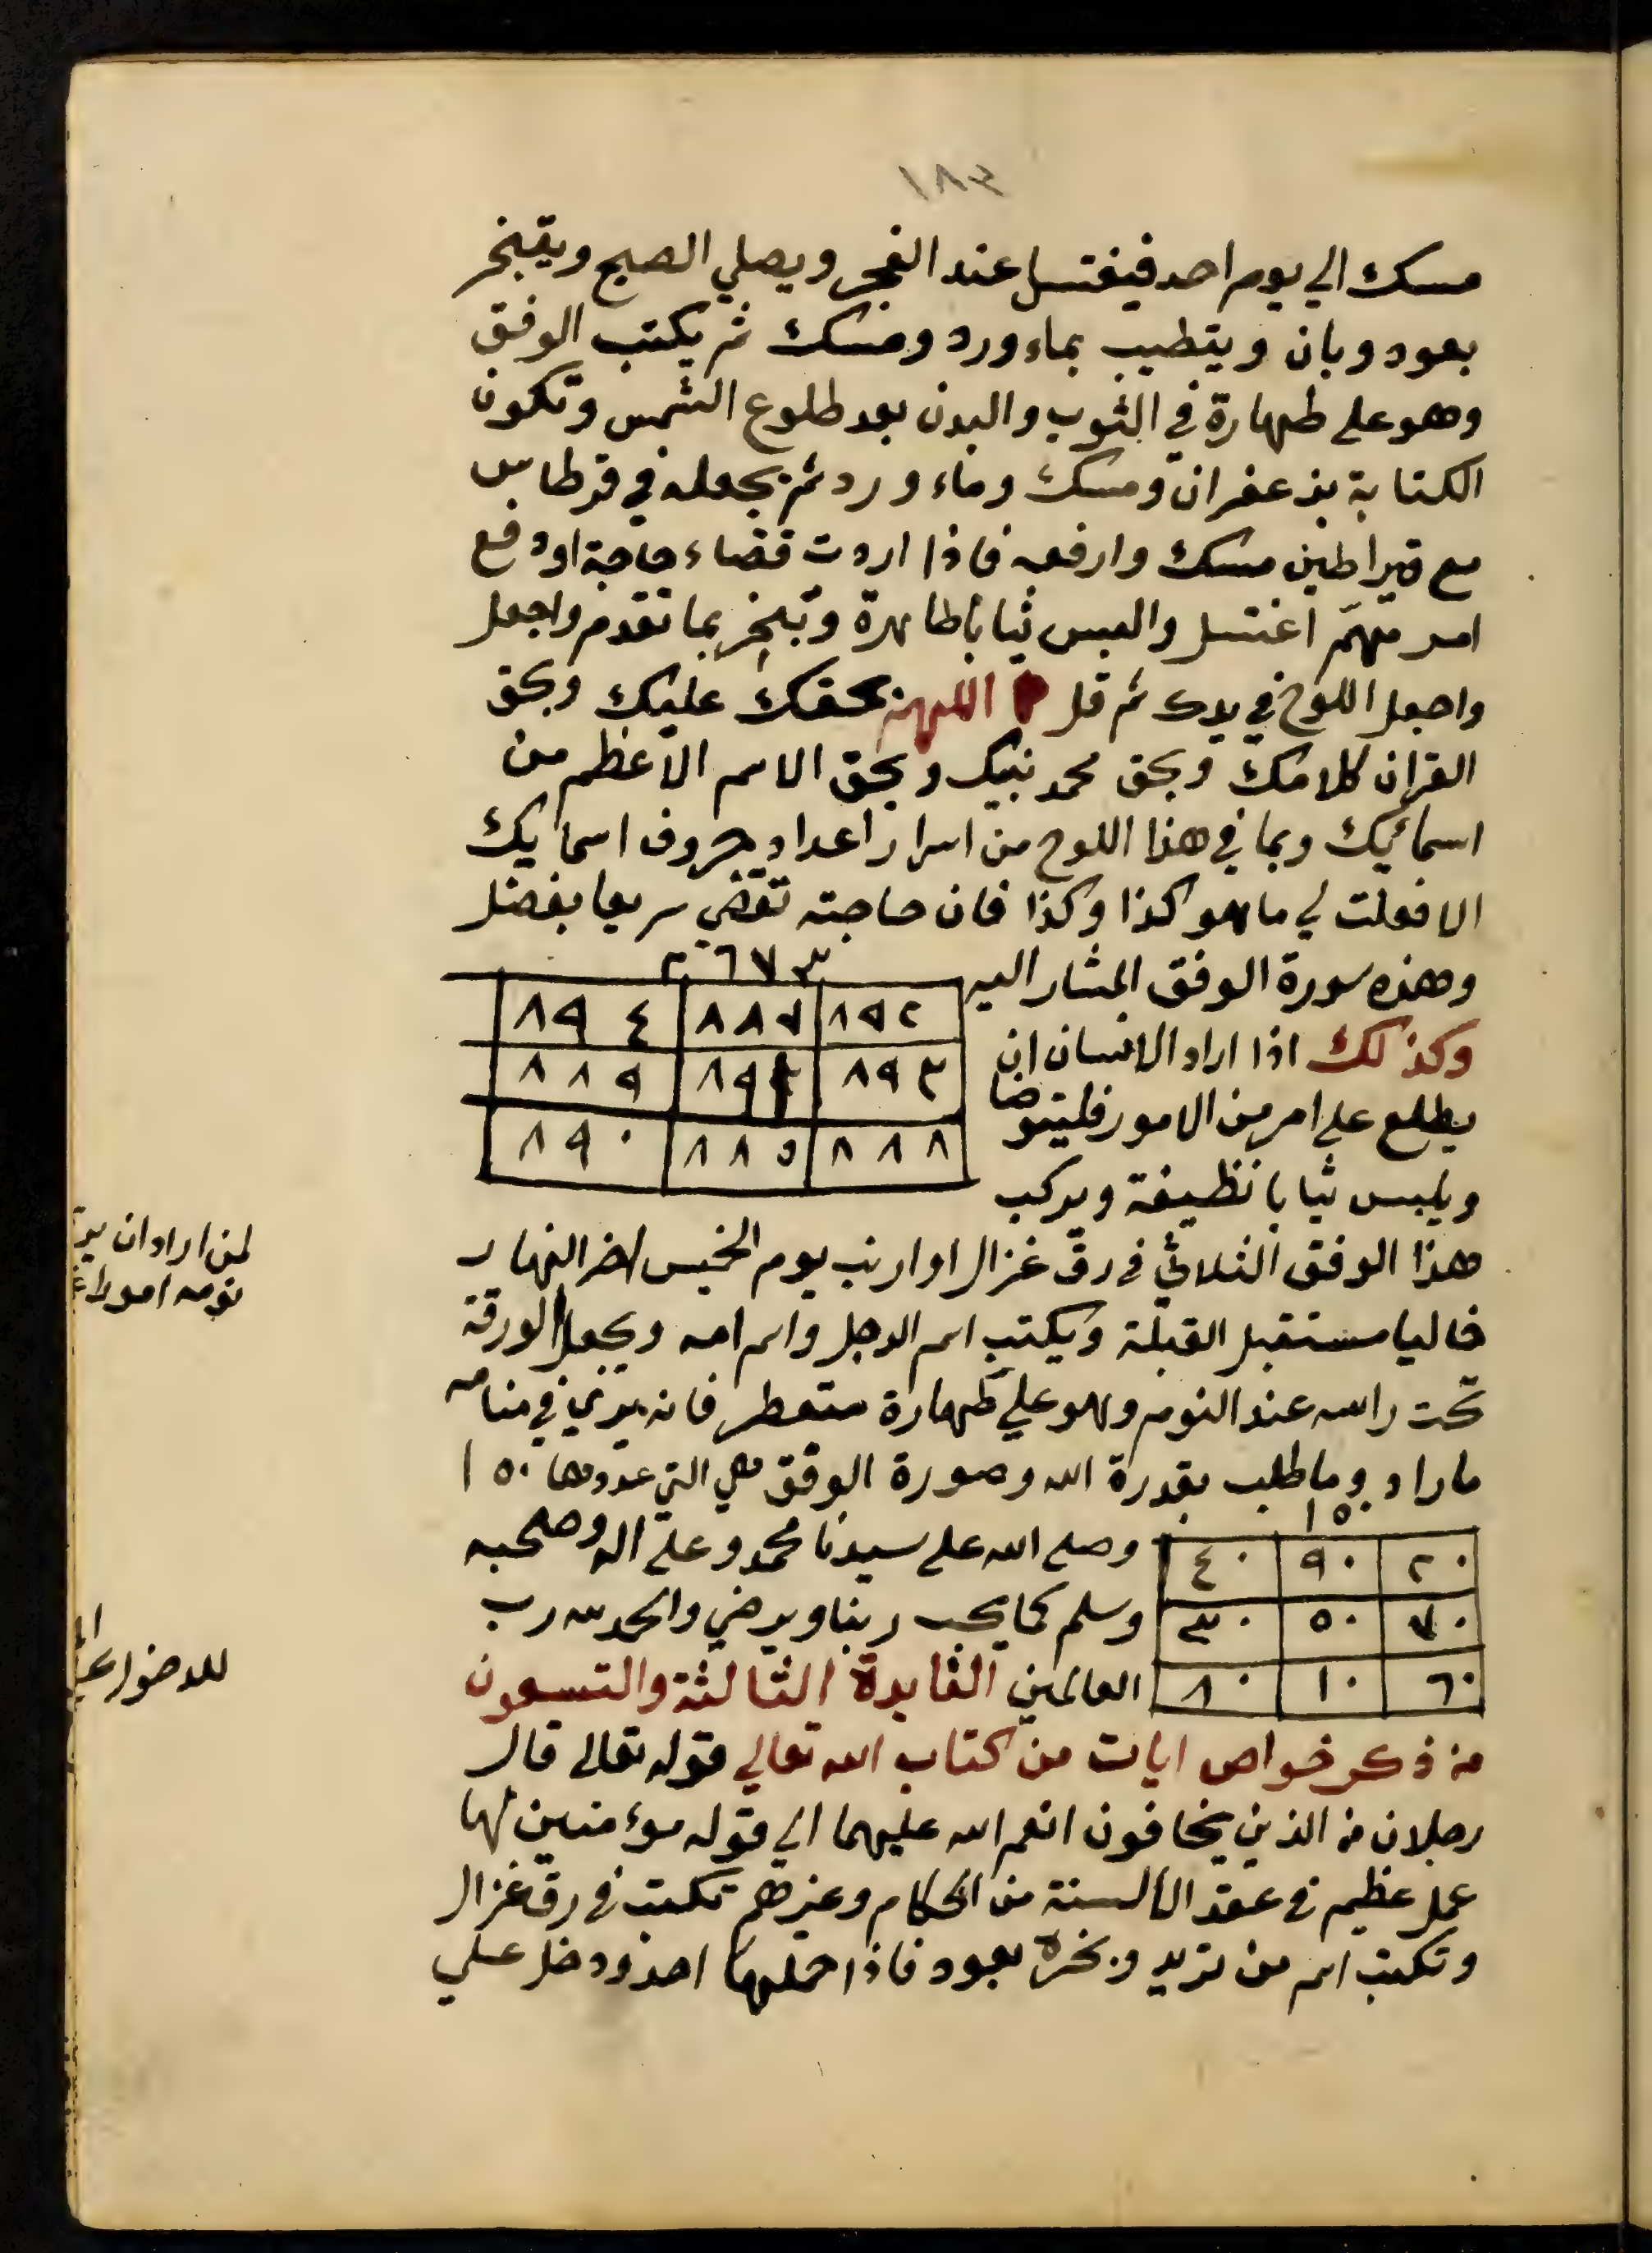 ١٨٣
مسك الي يوم احد فيغتسل عند الفجر ويصلي الصبح ويتبخر
بعود وبان ويتطيب بماء ورد ومسك ثم يكتب الوفق
وهو علي طهارة في الثوب والبدن بعد طلوع الشمس وتكون
الكتابة بزعفران ومسك وماء ورد ثم يجعله في قرطاس
مع قيراطين مسك وارفعه فاذا اردت قضاء حاجة او دفع
امر مهمّ اغتسل والبس ثيابا طاهرة وتبخر بما تقدم واجعل
واجعل اللوح في يدك ثم قل اللهم بحقك عليك وبحق
القران كلامك وبحق محمد نبيك وبحق الاسم الاعظم من
اسمائيك وبما في هذا اللوح من اسرار اعداد حروف اسمايك
الا فعلت لي ما هو كذا وكذا فان حاجته تقضي سريعا بفضل
وهذه سورة الوفق المشار اليه
٢٦٧٣
٨٩٢ ٨٨٧ ٨٩٤
٨٩٣ ٨٩١ ٨٨٩
٨٨٨ ٨٨٥ ٨٩٠
وكذلك اذا اراد الانسان ان
يطلع علي امر من الامور فليتوضا
ويلبس ثيابا نظيفة ويركب
هذا الوفق الثلاثي في رق غزال او ارنب يوم الخميس اخر النهار
خاليا مستقبل القبلة ويكتب اسم الرجل واسم امه ويجعل الورقة
تحت راسه عند النوم وهو علي طهارة متعطر فانه يري في منامه
ما راد وما طلب بقدرة الله وصورة الوفق هي التي عددها ١٥٠
١٥٠
٢٠ ٩٠ ٤٠
٧٠ ٥٠ ٣٠
٦٠ ١٠ ٨٠
وصلي الله علي سيدنا محمد وعلي اله وصحبه
وسلم كما يحب ربنا ويرضي والحمد لله رب
العالمين الفايدة الثالثة والتسعون
من ذكر خواص ايات من كتاب الله تعالي قوله تعالي قال
رجلان من الذين يخافون انعم الله عليهما الي قوله مؤمنين لها
عمل عظيم في عقد الالسنة من الحكام وغيرهم تكتب في رق غزال
وتكتب اسم من تريد وبخره بعود فاذا حملها احد ودخل علي
لمن اراد ان
نومه امورا